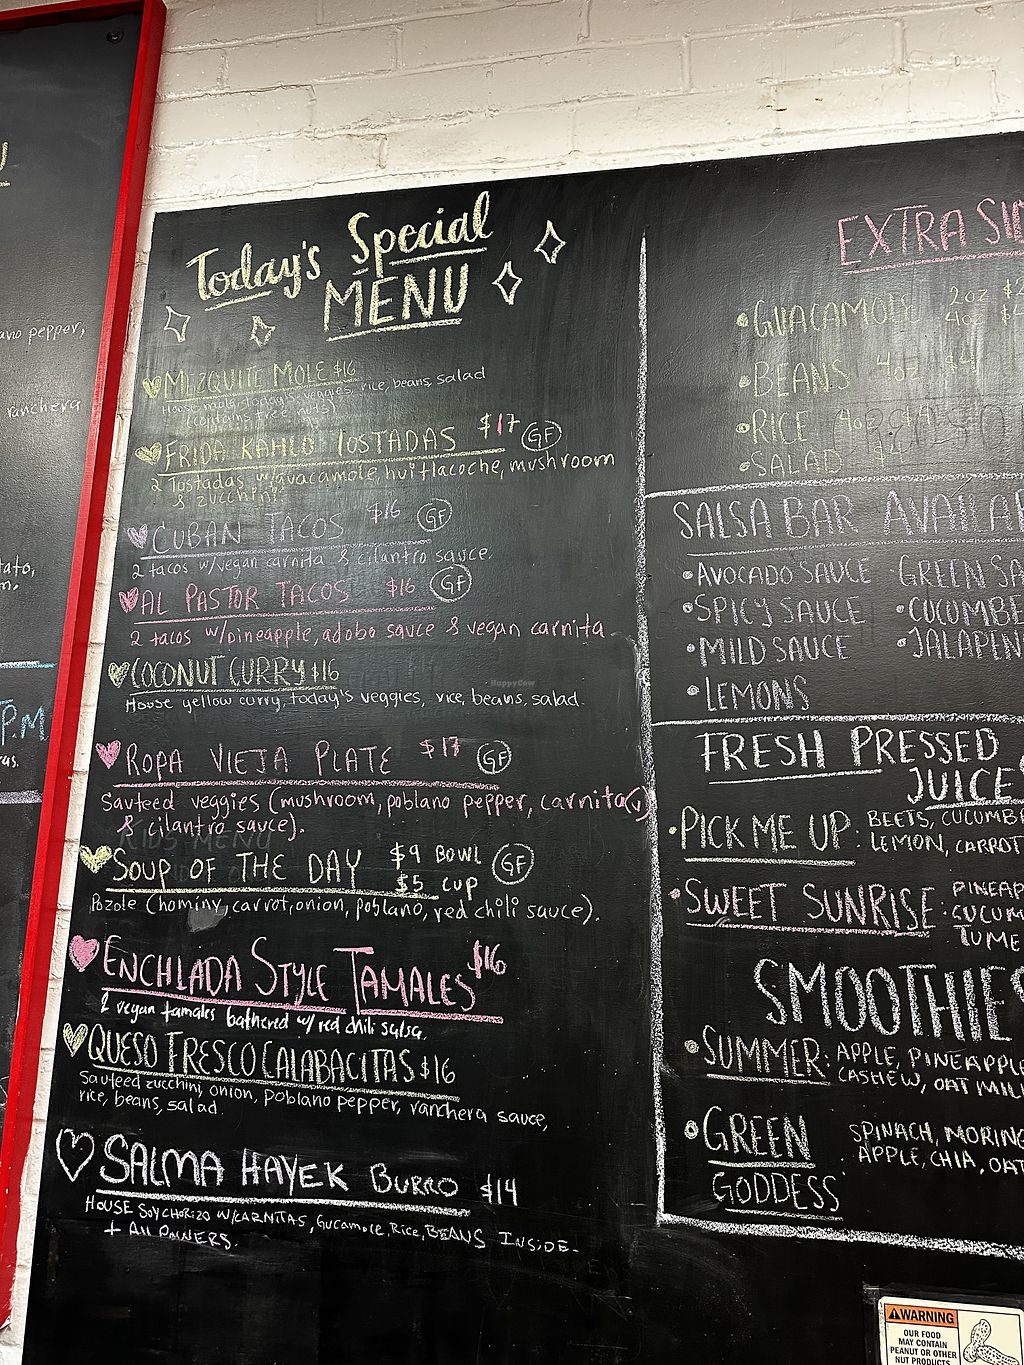 Today's Special
MENU
MEZQUITE MOLE $16
House mole, today's veggies, rice, beans, salad
(contains tree nuts)
FRIDA KAHLO TOSTADAS $17 GF
2 Tostadas w/avacamole, huitlacoche, mushroom
& zucchini.
CUBAN TACOS $16 GF
2 tacos w/vegan carnita & cilantro sauce.
AL PASTOR TACOS $16 GF
2 tacos w/pineapple, adobo sauce & vegan carnita
COCONUT CURRY $16
House yellow curry, today's veggies, rice, beans, salad.
ROPA VIEJA PLATE $17 GF
Sauteed veggies (mushroom, poblano pepper, carnita(v)
& cilantro sauce).
KIDS MENU
SOUP OF THE DAY $9 BOWL GF
$5 CUP
Pozole (hominy, carrot, onion, poblano, red chili sauce).
ENCHILADA STYLE TAMALES $16
2 vegan tamales bathered w/ red chili salsa.
QUESO FRESCO CALABACITAS $16
Sauteed zucchini, onion, poblano pepper, ranchera sauce,
rice, beans, salad.
SALMA HAYEK BURRO $14
HOUSE SOYCHORIZO W/CARNITAS, Gucamole, Rice, BEANS INSIDE.
EXTRA SID
•GUACAMOLE 2oz $2
4oz $4
•BEANS 4oz $4
•RICE 4oz $4
•SALAD $4
SALSA BAR AVAILAB
•AVOCADO SAUCE GREEN SA
•SPICY SAUCE •CUCUMBE
•MILD SAUCE •JALAPEN
•LEMONS
FRESH PRESSED
JUICE
•PICK ME UP: BEETS, CUCUMBE
LEMON, CARROT
•SWEET SUNRISE: PINEAP
CUCUM
TUME
SMOOTHIES
•SUMMER: APPLE, PINEAPPLE
CASHEW, OAT MILK
•GREEN SPINACH, MORING
GODDESS APPLE, CHIA, OAT
WARNING
OUR FOOD
MAY CONTAIN
PEANUT OR OTHER
NUT PRODUCTS
ano pepper,
ranchera
tato,
P.M
ras.
HappyCow